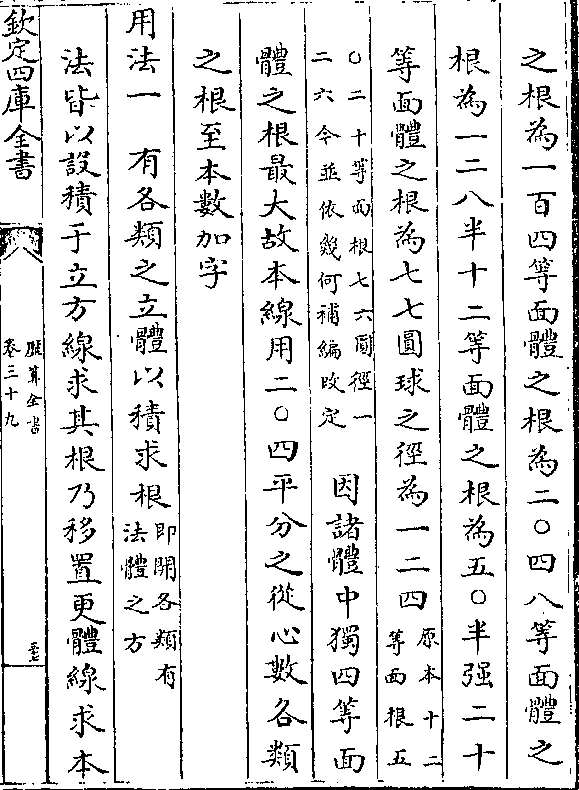 之根為一百四等面體之根為二○四八等面體之
根為一二八半十二等面體之根為五○半强二十
等面體之根為七七圓球之徑為一二四原本十二等面根五
○二十等面根七六圓徑一二六今並依幾何補編改定　因諸體中獨四等面
體之根最大故本線用二○四平分之從心數各類
之根至本數加字
用法一　有各類之立體以積求根即開各類有法體之方
法皆以設積于立方線求其根乃移置更體線求本
欽定四庫全書
厯算全書
卷三十九